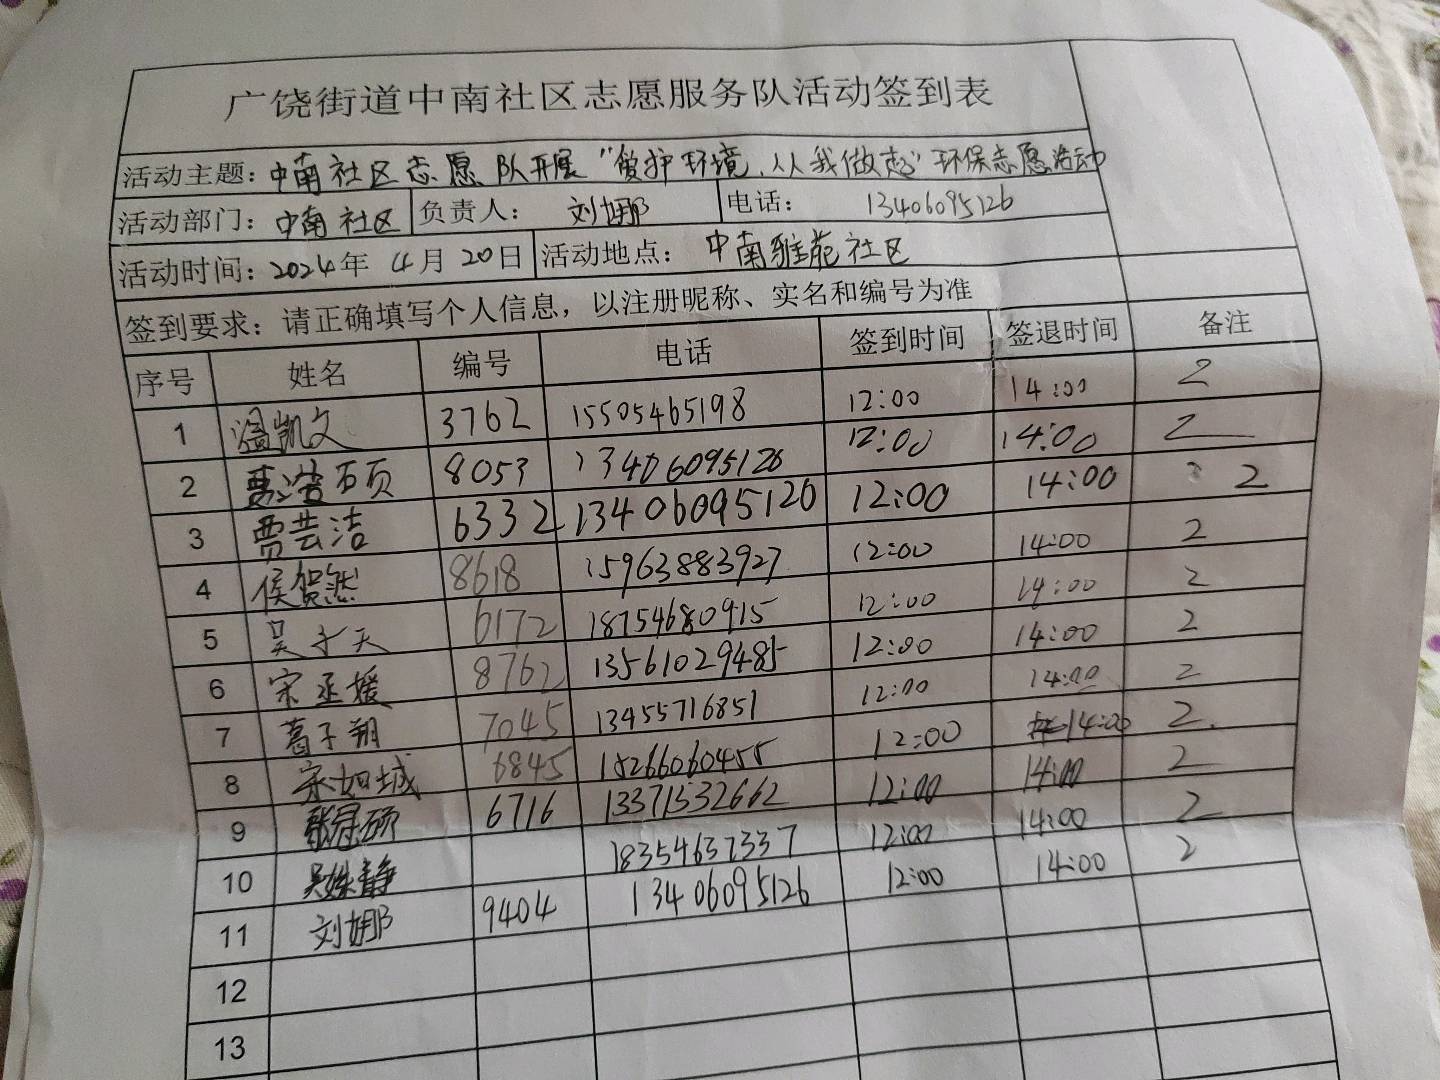 广饶街道中南社区志愿服务队活动签到表
活动主题：中南社区志愿队开展“爱护环境，从我做起”环保志愿活动
活动部门：中南社区 负责人：刘娜 电话：13406095126
活动时间：2024年 4月 20日 活动地点：中南雅苑社区
签到要求：请正确填写个人信息，以注册昵称、实名和编号为准
序号 姓名 编号 电话 签到时间 签退时间 备注
1 温凯文 3762 15505465198 12:00 14:00 2
2 8053 13406095126 12:00 14:00 2
3 贾芸洁 6332 13406095126 12:00 14:00 2
4 侯贺然 8618 15963883927 12:00 14:00 2
5 吴子天 6172 18754680915 12:00 14:00 2
6 宋丞媛 8762 13561029485 12:00 14:00 2
7 葛子翔 7045 13455716851 12:00 14:00 2
8 宋如城 6845 18266060455 12:00 14:00 2
9 张冠硕 6716 13371532662 12:00 14:00 2
10 吴姝静 18354637337 12:00 14:00 2
11 刘娜 9404 13406095126 12:00 14:00 2
12
13